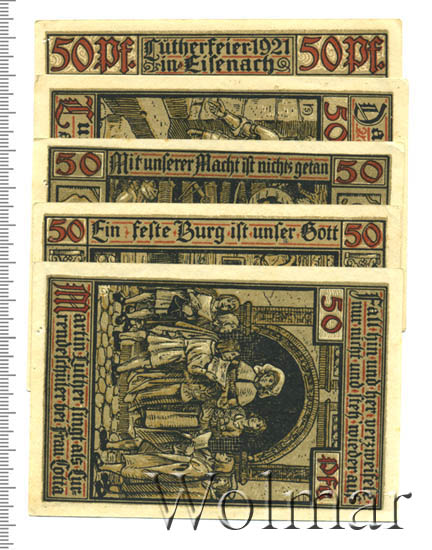 50 Pf.
Lutherfeier 1921
in Eisenach
50 Pf.
50
Mit unserer Macht ist nichts getan
50
50
Ein feste Burg ist unser Gott
50
Martin Luther singt als Kur-
rendeschüler bei Frau Cotta
50
Pfg
Fall hin und her verzweifele
nur nicht und steh wieder auf.
Wolmar